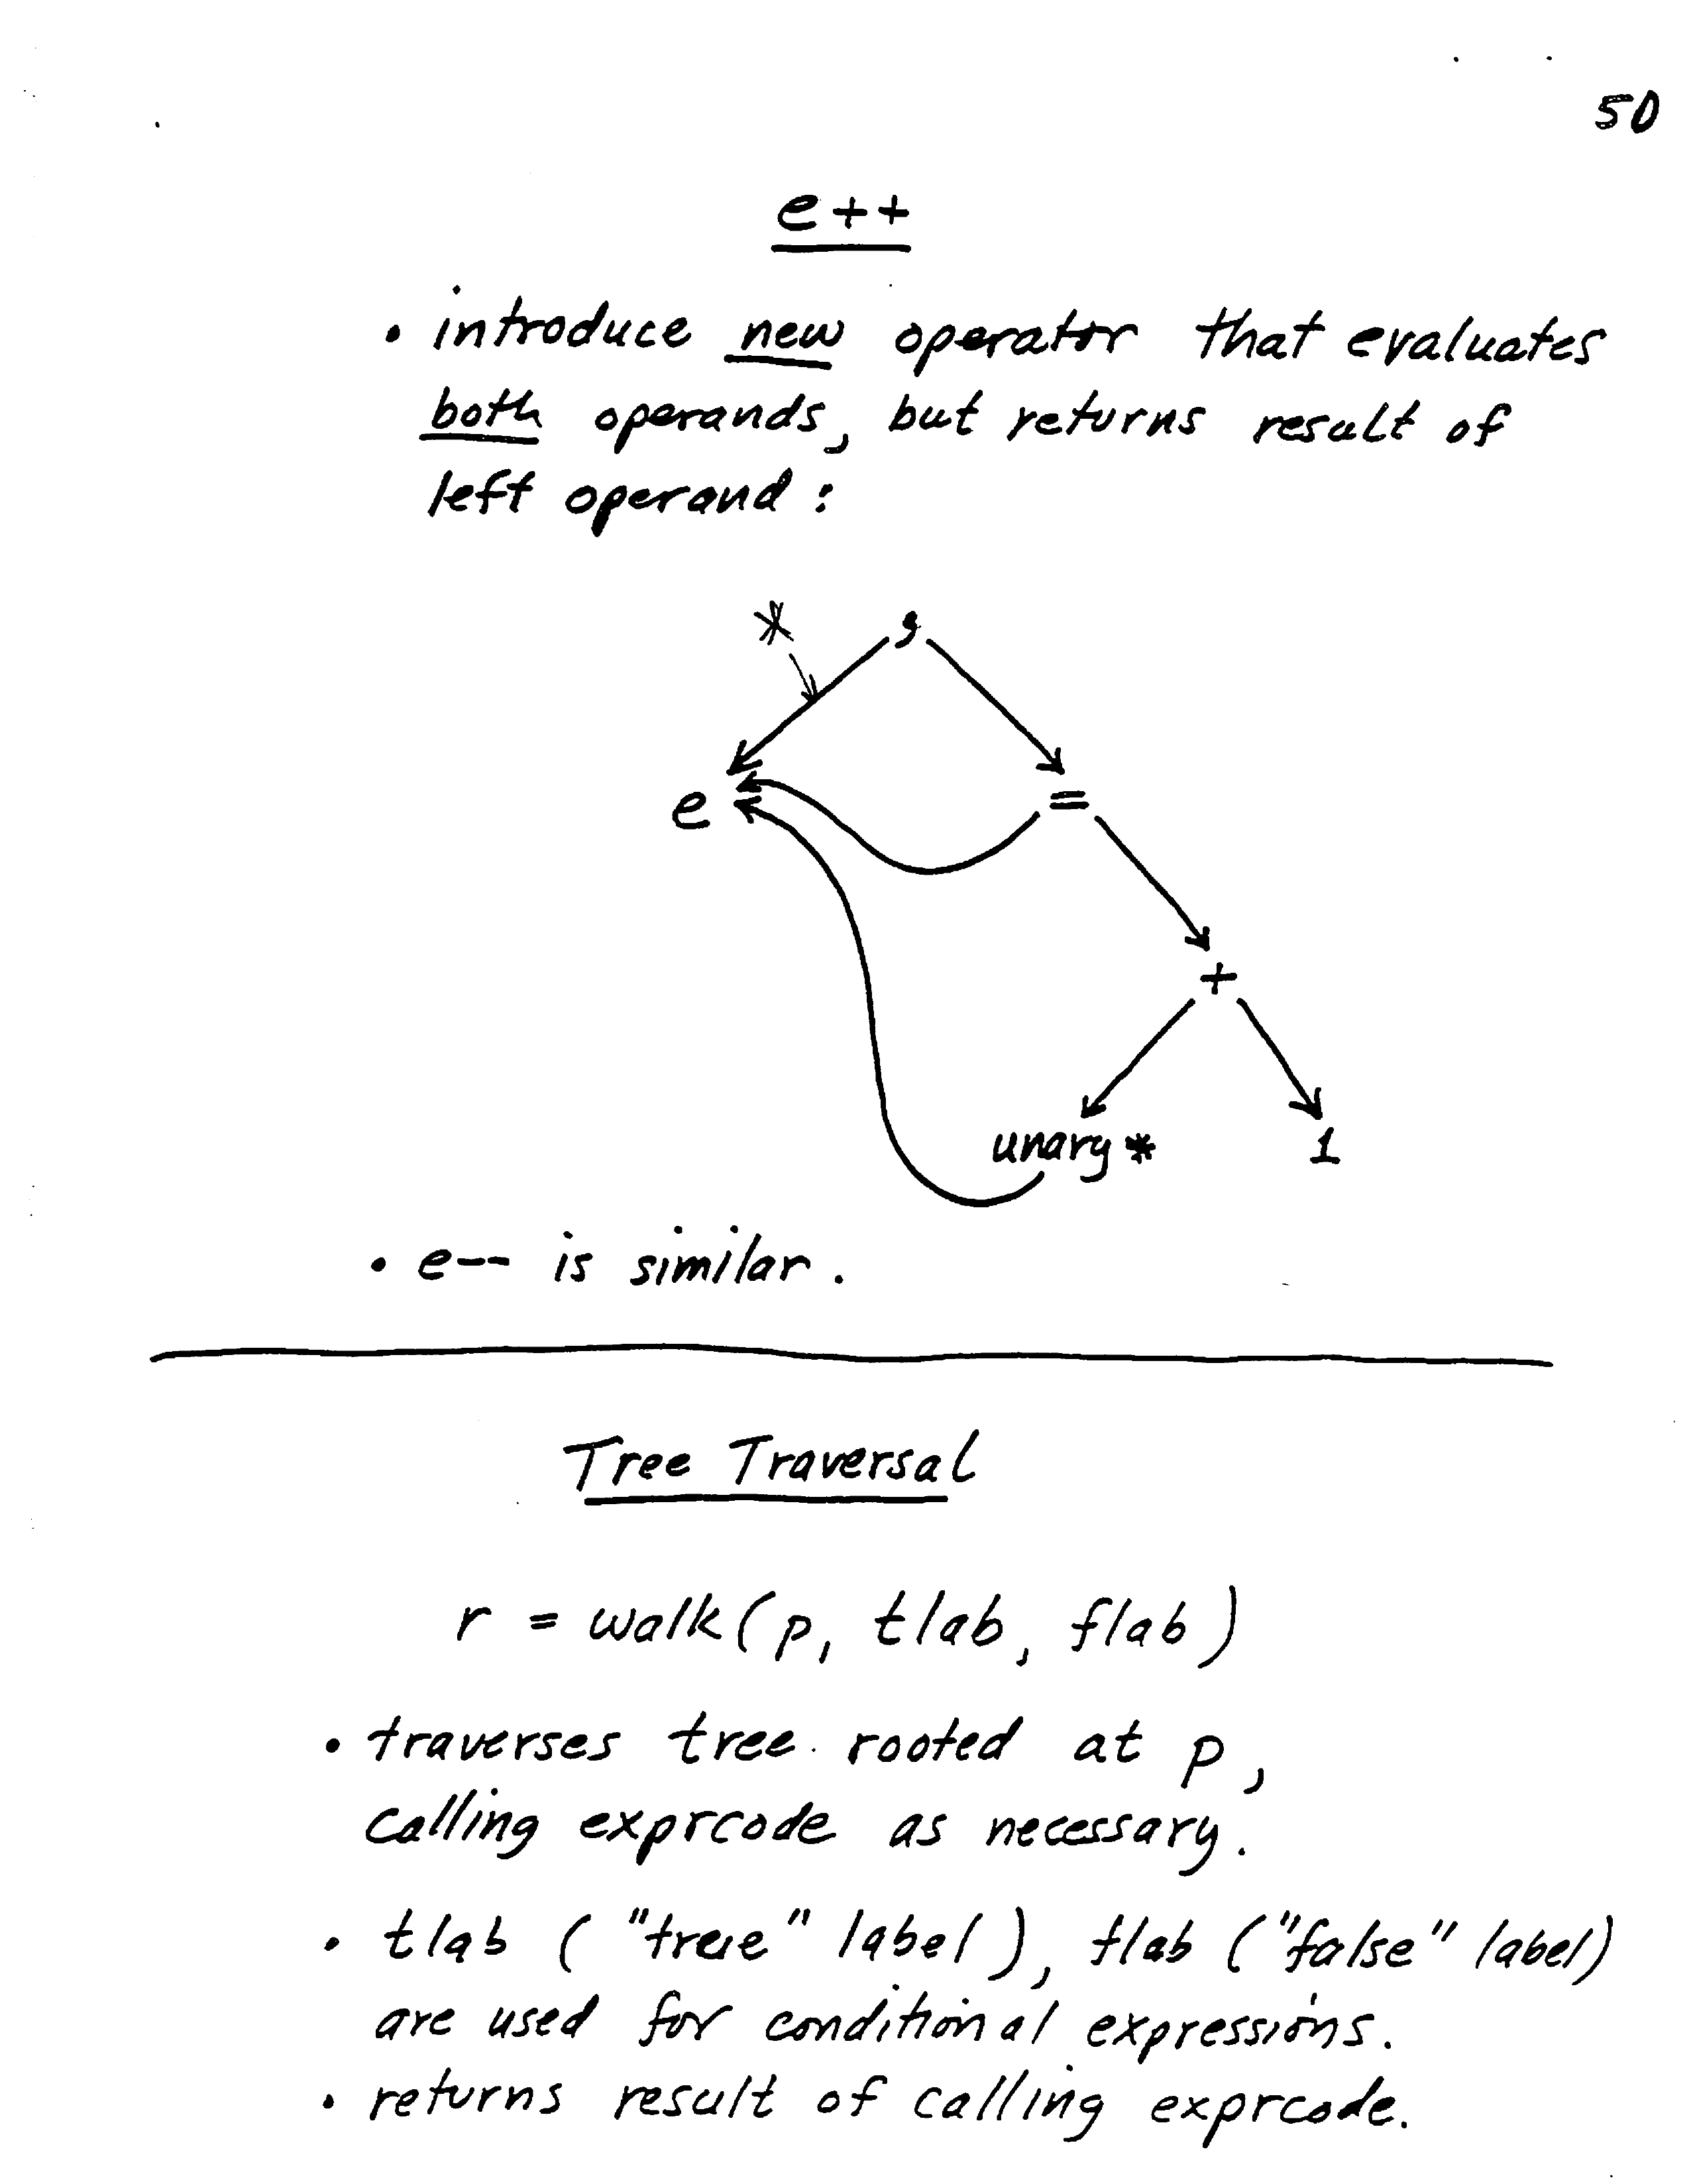 50
e++
• introduce new operator that evaluates
both operands, but returns result of
left operand :
* ;
e =
+
unary * 1
• e-- is similar.
Tree Traversal
r = walk(p, tlab, flab)
• traverses tree rooted at p,
calling exprcode as necessary.
• tlab ("true" label), flab ("false" label)
are used for conditional expressions.
• returns result of calling exprcode.